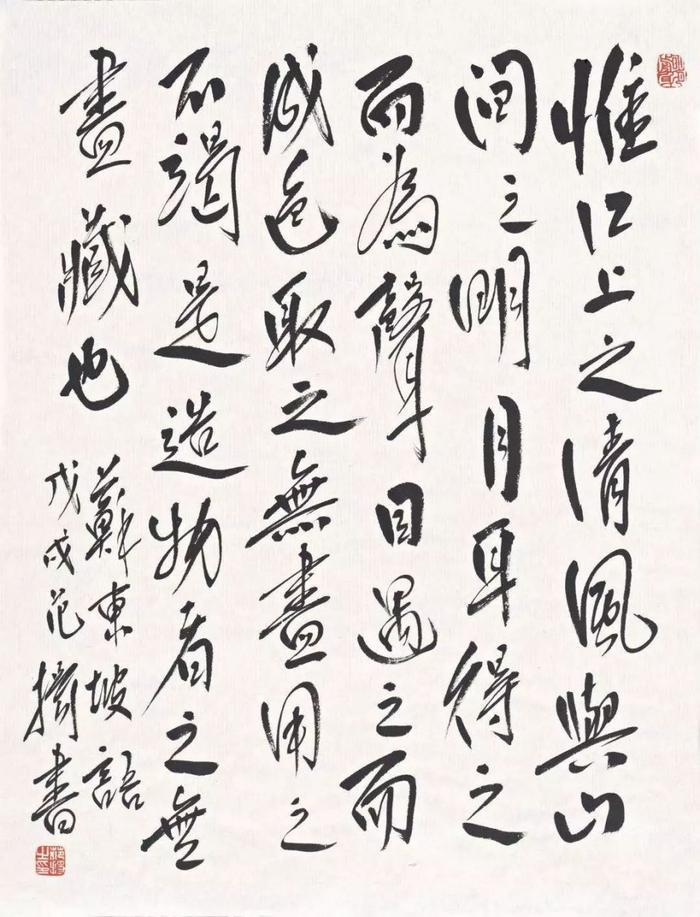 惟江上之清風與山
間之明月耳得之
而為聲目遇之而
成色取之無盡用之
不竭是造物者之無
盡藏也
蘇東坡語
戊戌范書